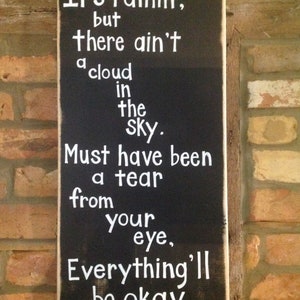 It's rainin',
but
there ain't
a cloud
in
the
sky.
Must have been
a tear
from
your
eye,
Everything'll
be okay